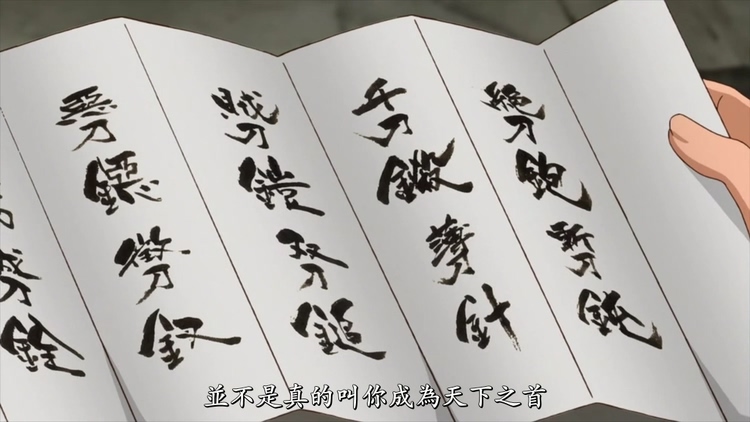 絶刀 鉋 斬刀 鈍
千刀 鎩 薄刀 針
賊刀 鎧 双刀 鎚
悪刀 鐚 微刀 釵
銓
並不是真的叫你成為天下之首